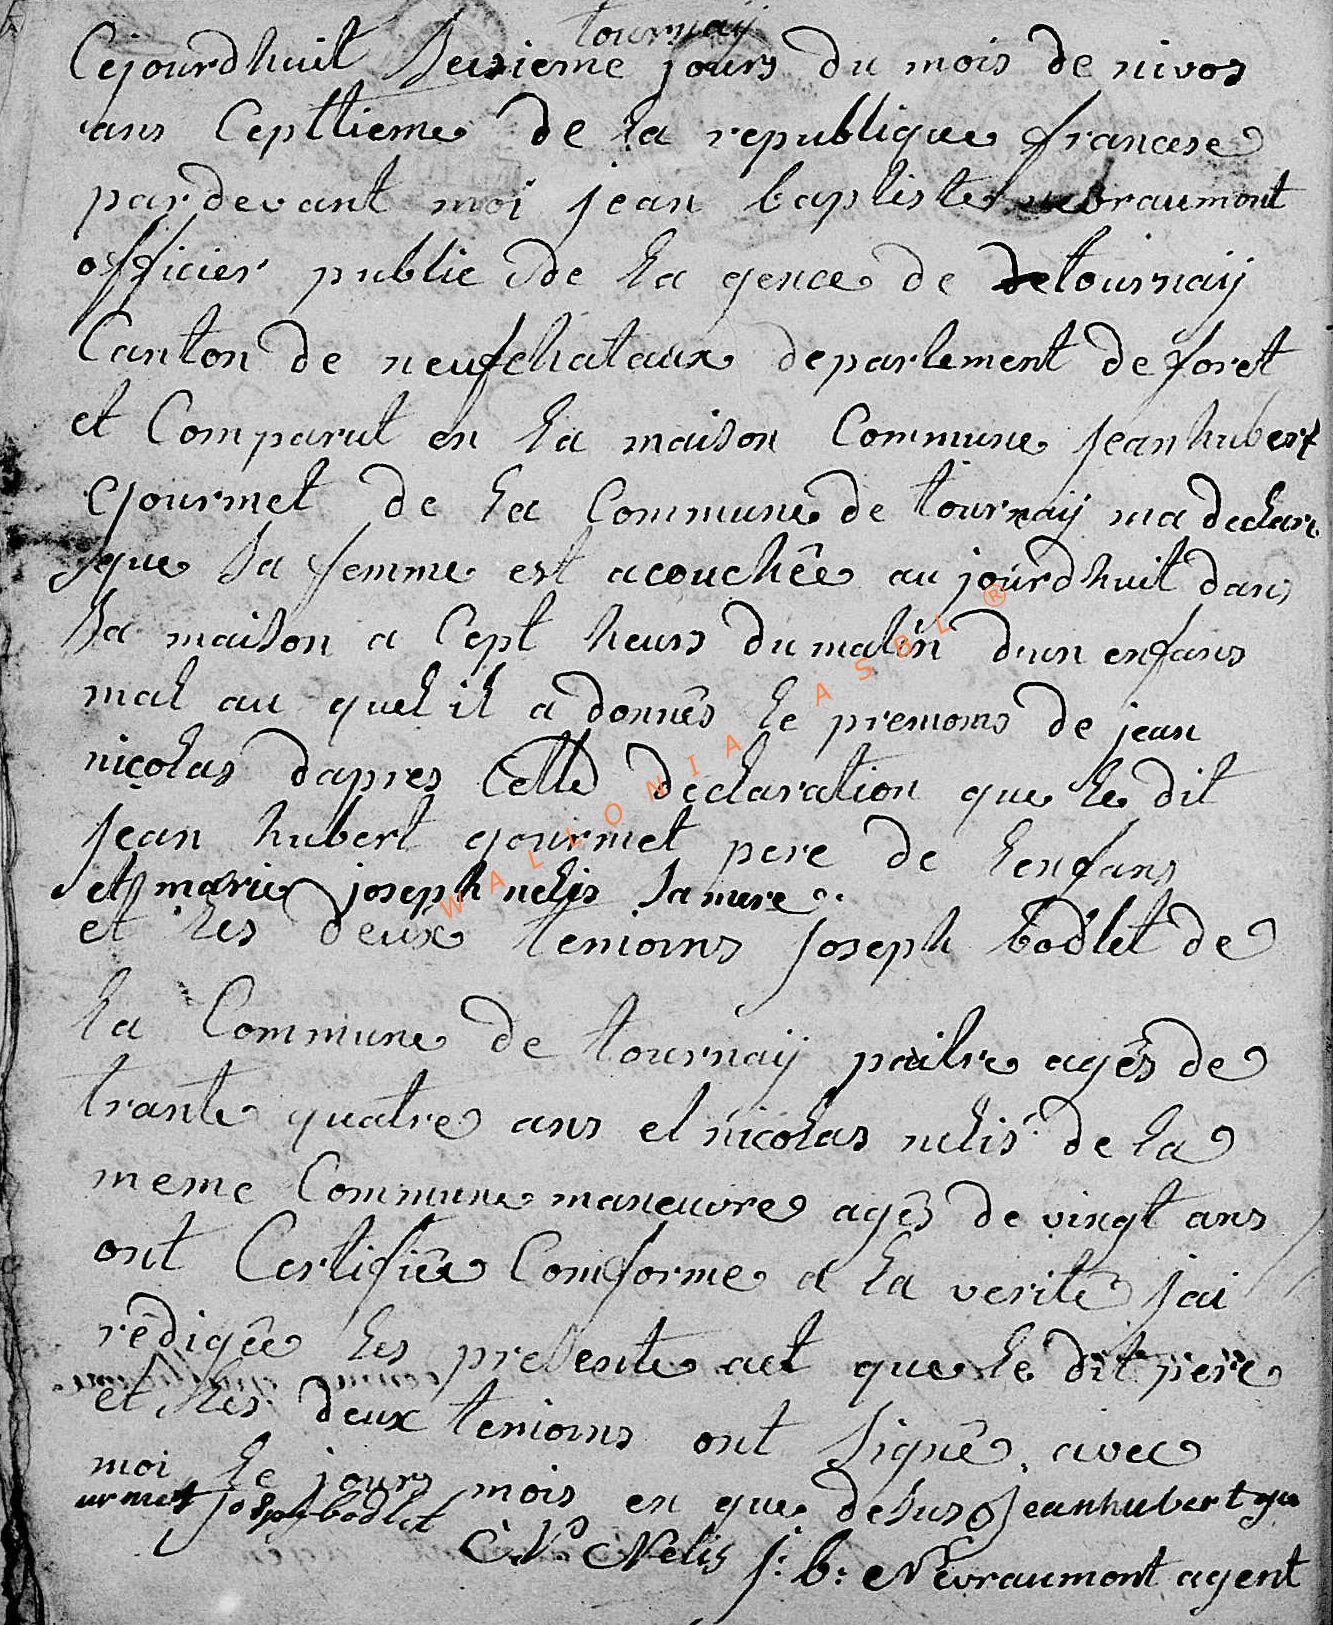 tournaÿ
Cejourdhuit deusieme jours du mois de nivos
ans Cepttieme de la republique francese
pardevant moi jean baptiste nevraumont
officier public de la gence de detournaÿ
Canton de neufchataux departement de foret
et Comparut en la maison Commune jean hubert
gourmet de la Commune de tournaÿ ma declare
que Sa femme est acouchêe au jourdhuit dans
Sa maison a Cept heurs du matin dun enfans
mal au quel il a donnês le premoms de jean
nicolas dapres Cette declaration que le dit
jean hubert gourmet pere de lenfans
et marie joseph nelis Sa mere
et les deux temoins joseph bodlet de
la Commune de tournaÿ paitre agês de
trante quatre ans et nicolas nelis de la
meme Commune maneuvre agês de vingt ans
ont Certifiêe Comforme a la veritê jai
rêdigêe les presente act que le dit pere
et les deux temoins ont Signê avec
moi le jours mois en que desus jeanhubert gou
urmet josep bodlet
N. Nelis j: b: Nevraumont agent
WALLONIA ASBL ®